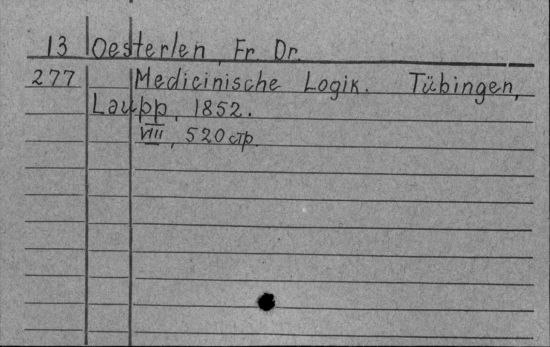 13 Oesterlen, Fr. Dr.
277 Medicinische Logik. Tübingen,
Laupp, 1852.
VIII, 520 стр.